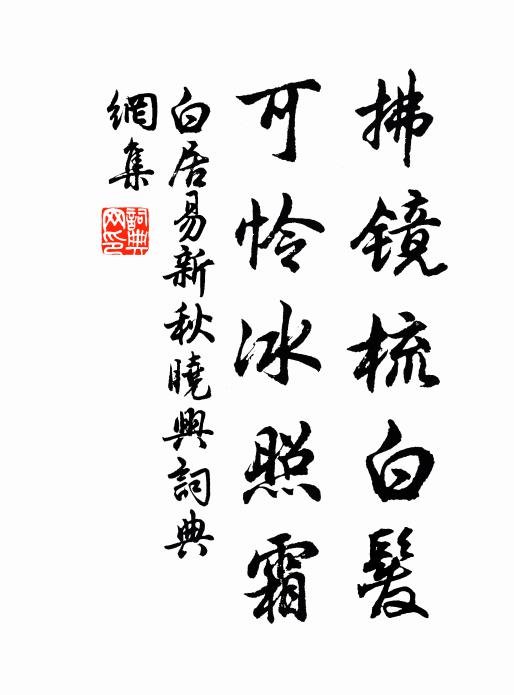 拂鏡梳白髮
可怜冰照霜
白居易新秋曉興詞典
網集
詞典
网印